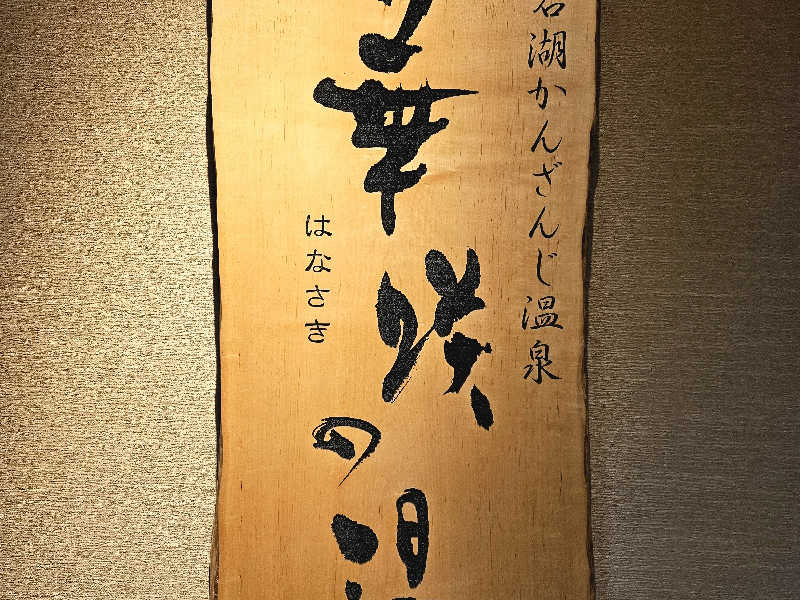 湖かんざんじ温泉
華咲の
はなさき